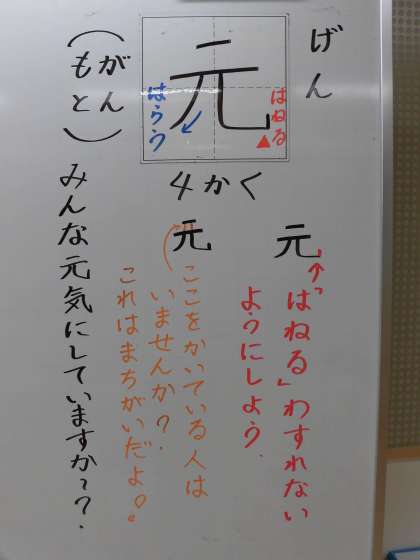 げん
元
はねる
はらう
4かく
(がん
もと)
元
「はねる」わすれない
ようにしよう.
元
ここをかいている人は
いませんか?.
これはまちがいだよ。
みんな元気にしていますか~?.